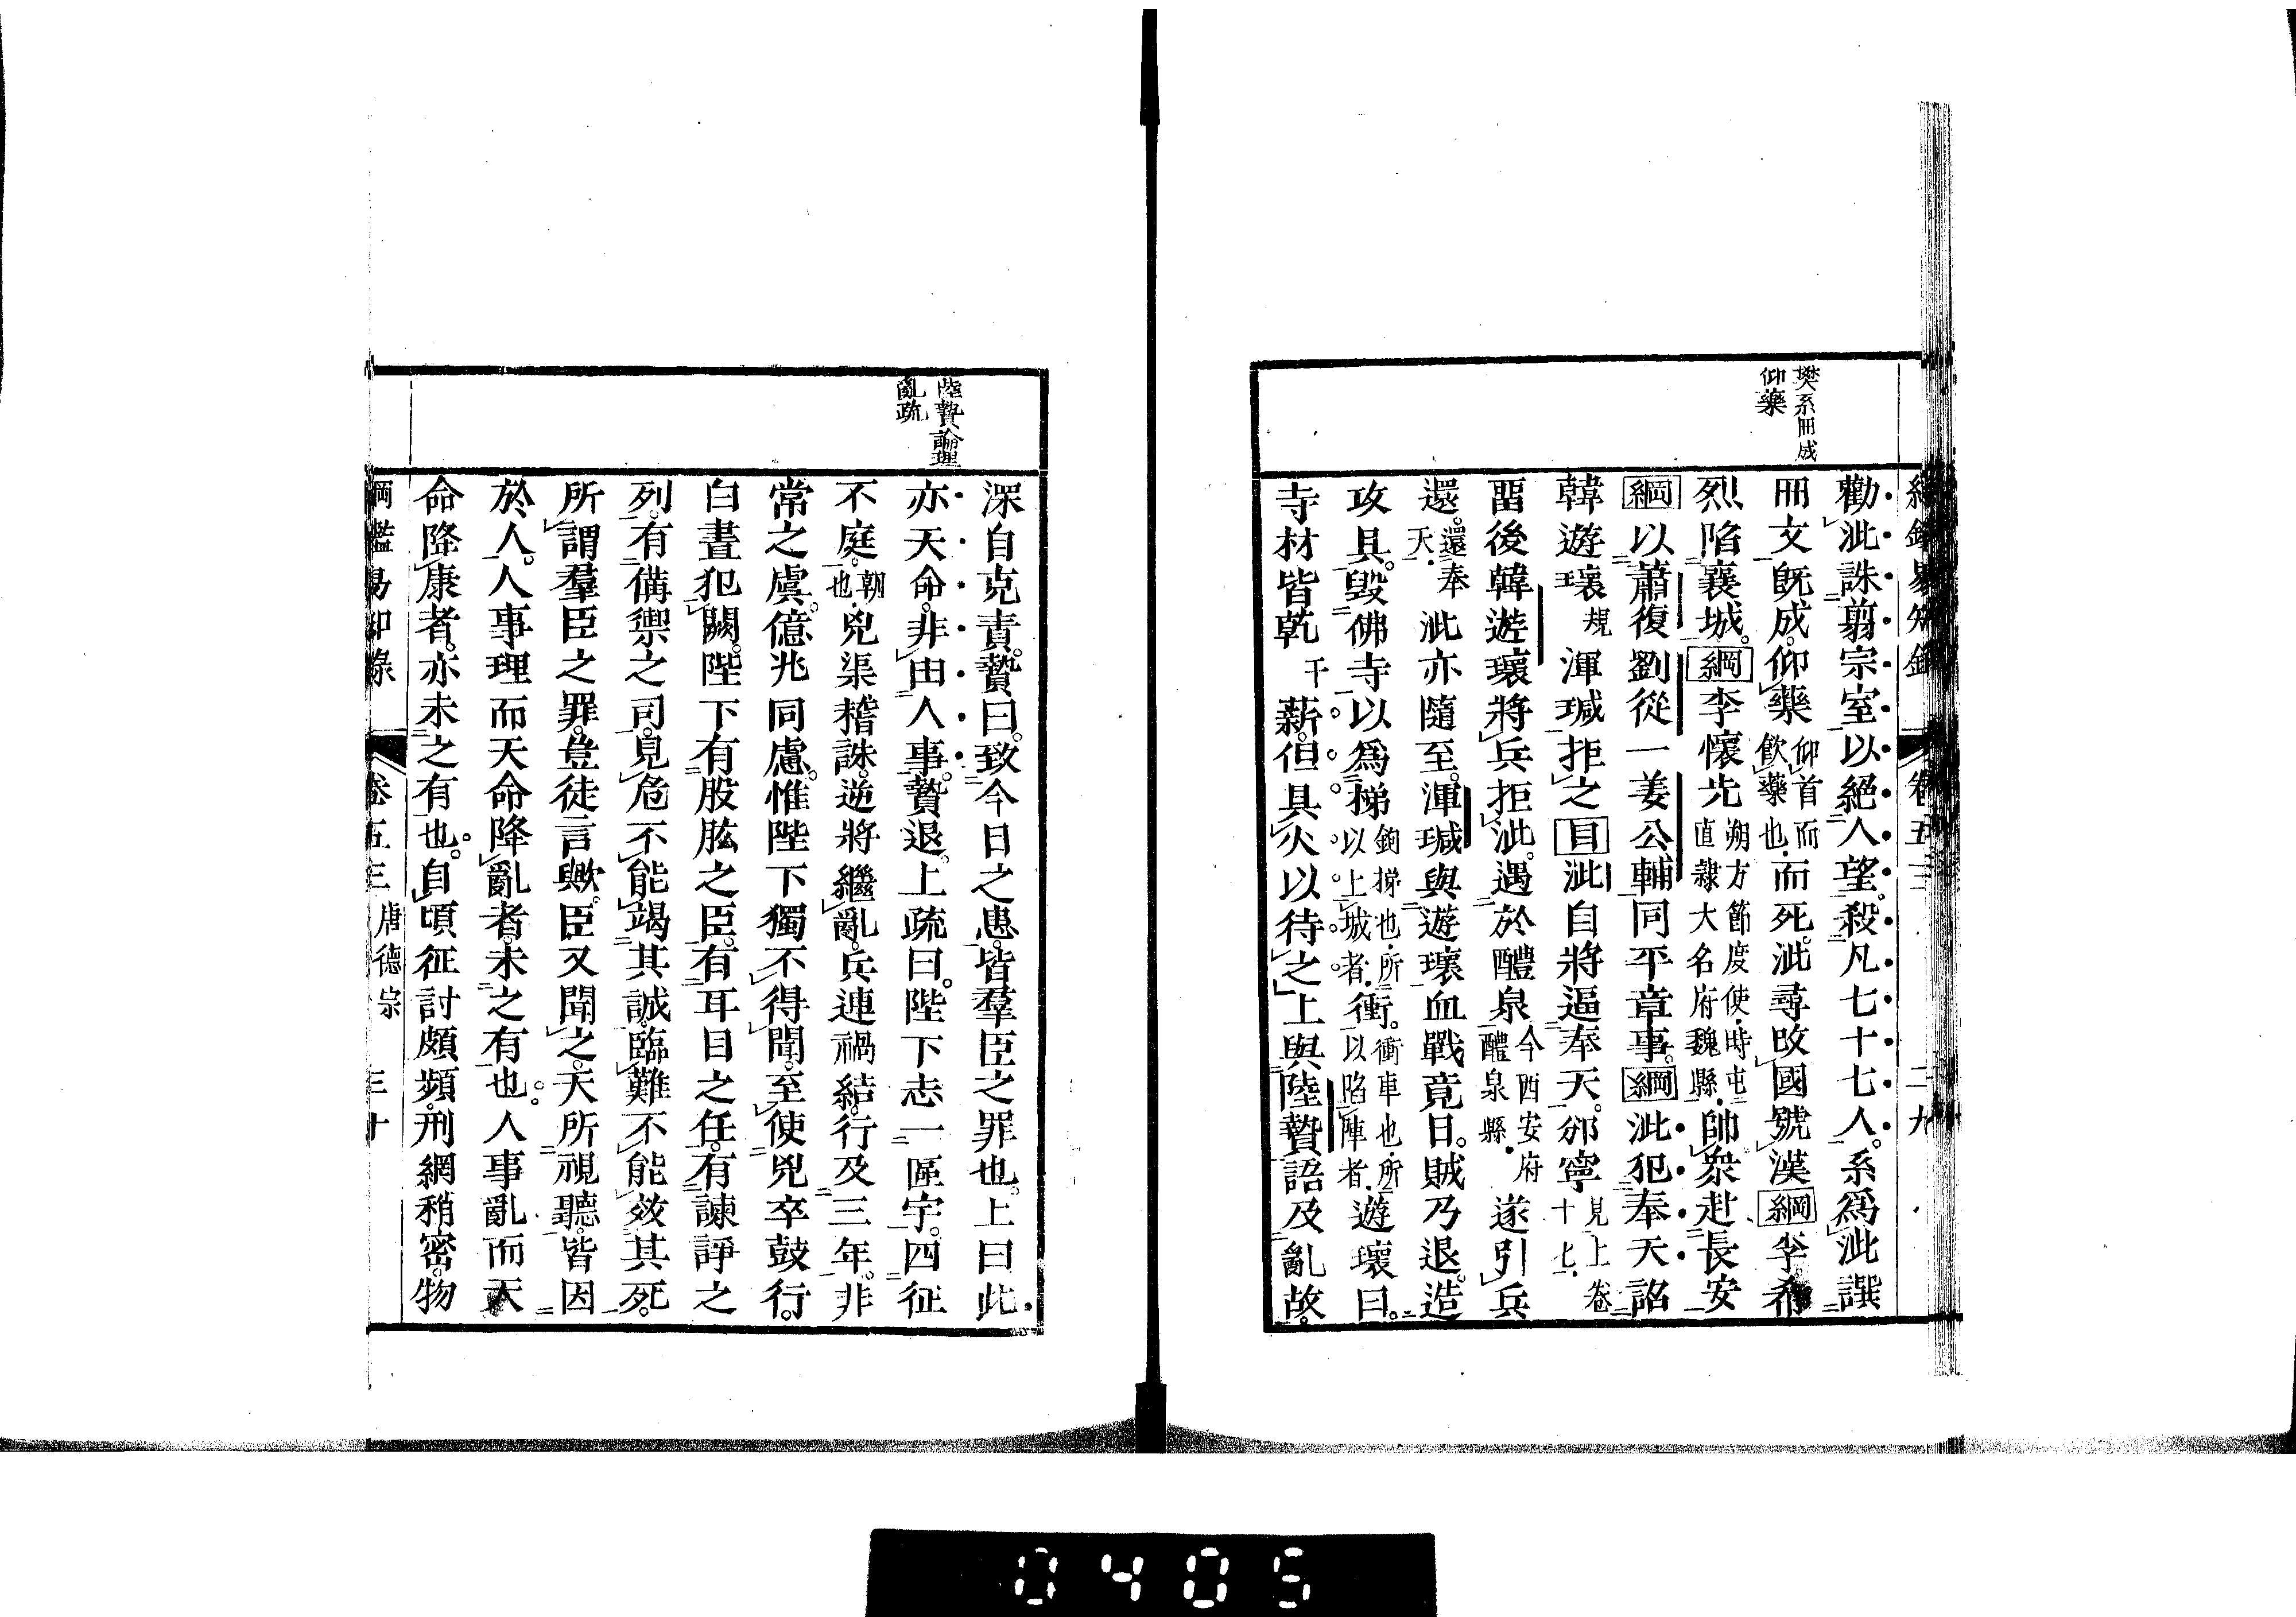 綱鑑易知錄 卷五三 二九
樊系冊成
仰藥
勸泚誅翦宗室以絕人望殺凡七十七人系爲泚譔
冊文既成仰藥仰首而飲藥也而死泚尋改國號漢綱李希
烈陷襄城綱李懷光朔方節度使時屯直隸大名府魏縣帥衆赴長安
綱以蕭復劉從一姜公輔同平章事綱泚犯奉天詔
韓遊瓌規渾瑊拒之目泚自將逼奉天邠寧見上卷十七
畱後韓遊瓌將兵拒泚遇於醴泉今西安府醴泉縣遂引兵
還還奉天泚亦隨至渾瑊與遊瓌血戰竟日賊乃退造
攻具毀佛寺以爲梯鉤梯也所以上城者衝衝車也所以陷陣者遊瓌曰
寺材皆乾干薪但具火以待之上與陸贄語及亂故
陸贄論理
亂疏
深自克責贄曰致今日之患皆羣臣之罪也上曰此
亦天命非由人事贄退上疏曰陛下志一區宇四征
不庭朝也兇渠稽誅逆將繼亂兵連禍結行及三年非
常之虞億兆同慮惟陛下獨不得聞至使兇卒鼓行
白晝犯闕陛下有股肱之臣有耳目之任有諫諍之
列有備禦之司見危不能竭其誠臨難不能效其死
所謂羣臣之罪豈徒言歟臣又聞之天所視聽皆因
於人人事理而天命降亂者未之有也人事亂而天
命降康者亦未之有也自頃征討頗頻刑網稍密物
綱鑑易知錄 卷五三 唐德宗 三十
0405